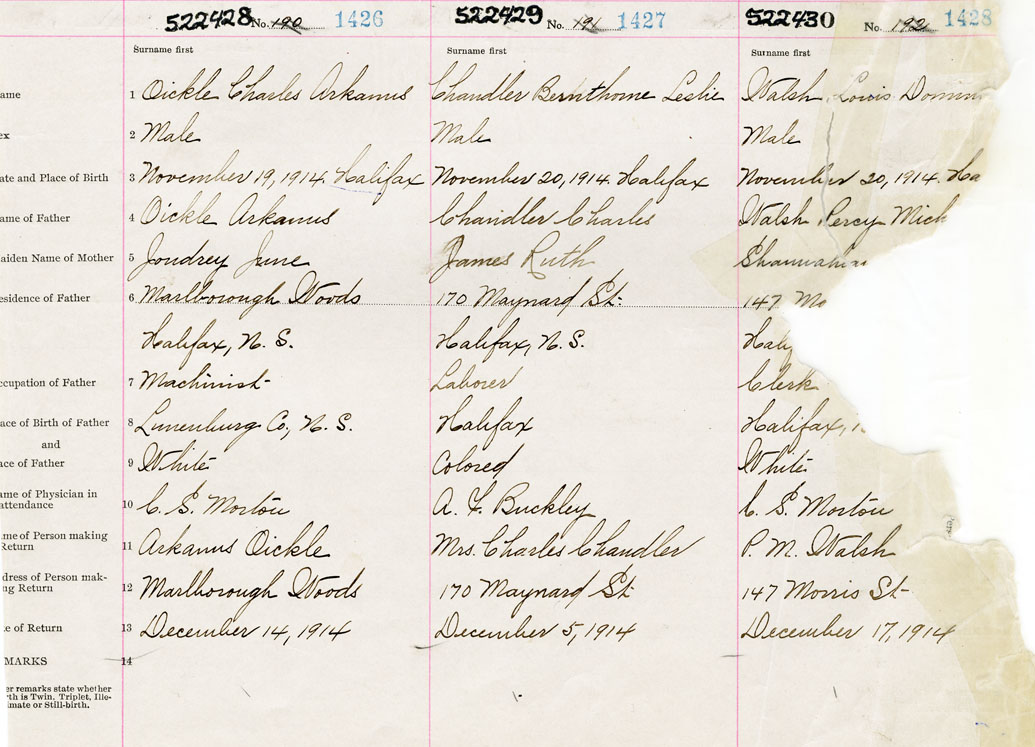 522428 No. 190 1426 522429 No. 191 1427 522430 No. 192 1428
Surname first Surname first Surname first
ame 1 Oickle Charles Arkanus Chandler Bernthorne Leslie Walsh, Louis Domin
ex 2 Male Male Male
ate and Place of Birth 3 November 19, 1914. Halifax November 20, 1914. Halifax November 20, 1914. Ha
ame of Father 4 Oickle Arkanus Chandler Charles Walsh Percy Mich
aiden Name of Mother 5 Joudrey June James Ruth
esidence of Father 6 Marlborough Woods 170 Maynard St. 147 Mo
Halifax, N. S. Halifax, N. S. Hali
ccupation of Father 7 Machinist Laborer Clerk
ace of Birth of Father 8 Lunenburg Co., N. S. Halifax Halifax,
and
ace of Father 9 White Colored White
ame of Physician in
attendance 10 C. S. Morton A. F. Buckley C. S. Morton
me of Person making
Return 11 Arkanus Oickle Mrs. Charles Chandler P. M. Walsh
dress of Person mak-
ng Return 12 Marlborough Woods 170 Maynard St. 147 Morris St.
te of Return 13 December 14, 1914 December 5, 1914 December 17, 1914
MARKS 14
er remarks state whether
rth is Twin, Triplet, Ille-
imate or Still-birth.